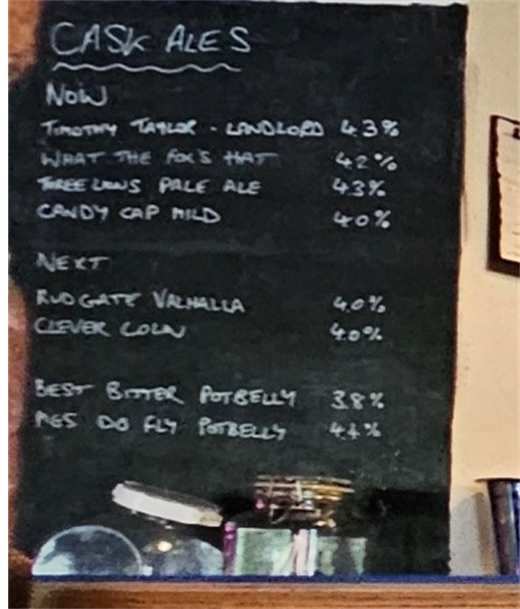 CASK ALES
NOW
TIMOTHY TAYLOR - LANDLORD 4.3%
WHAT THE FOX'S HAT 4.2%
THREE LIONS PALE ALE 4.3%
CANDY CAP MILD 4.0%
NEXT
RUDGATE VALHALLA 4.0%
CLEVER COLIN 4.0%
BEST BITTER POTBELLY 3.8%
PIGS DO FLY POTBELLY 4.4%